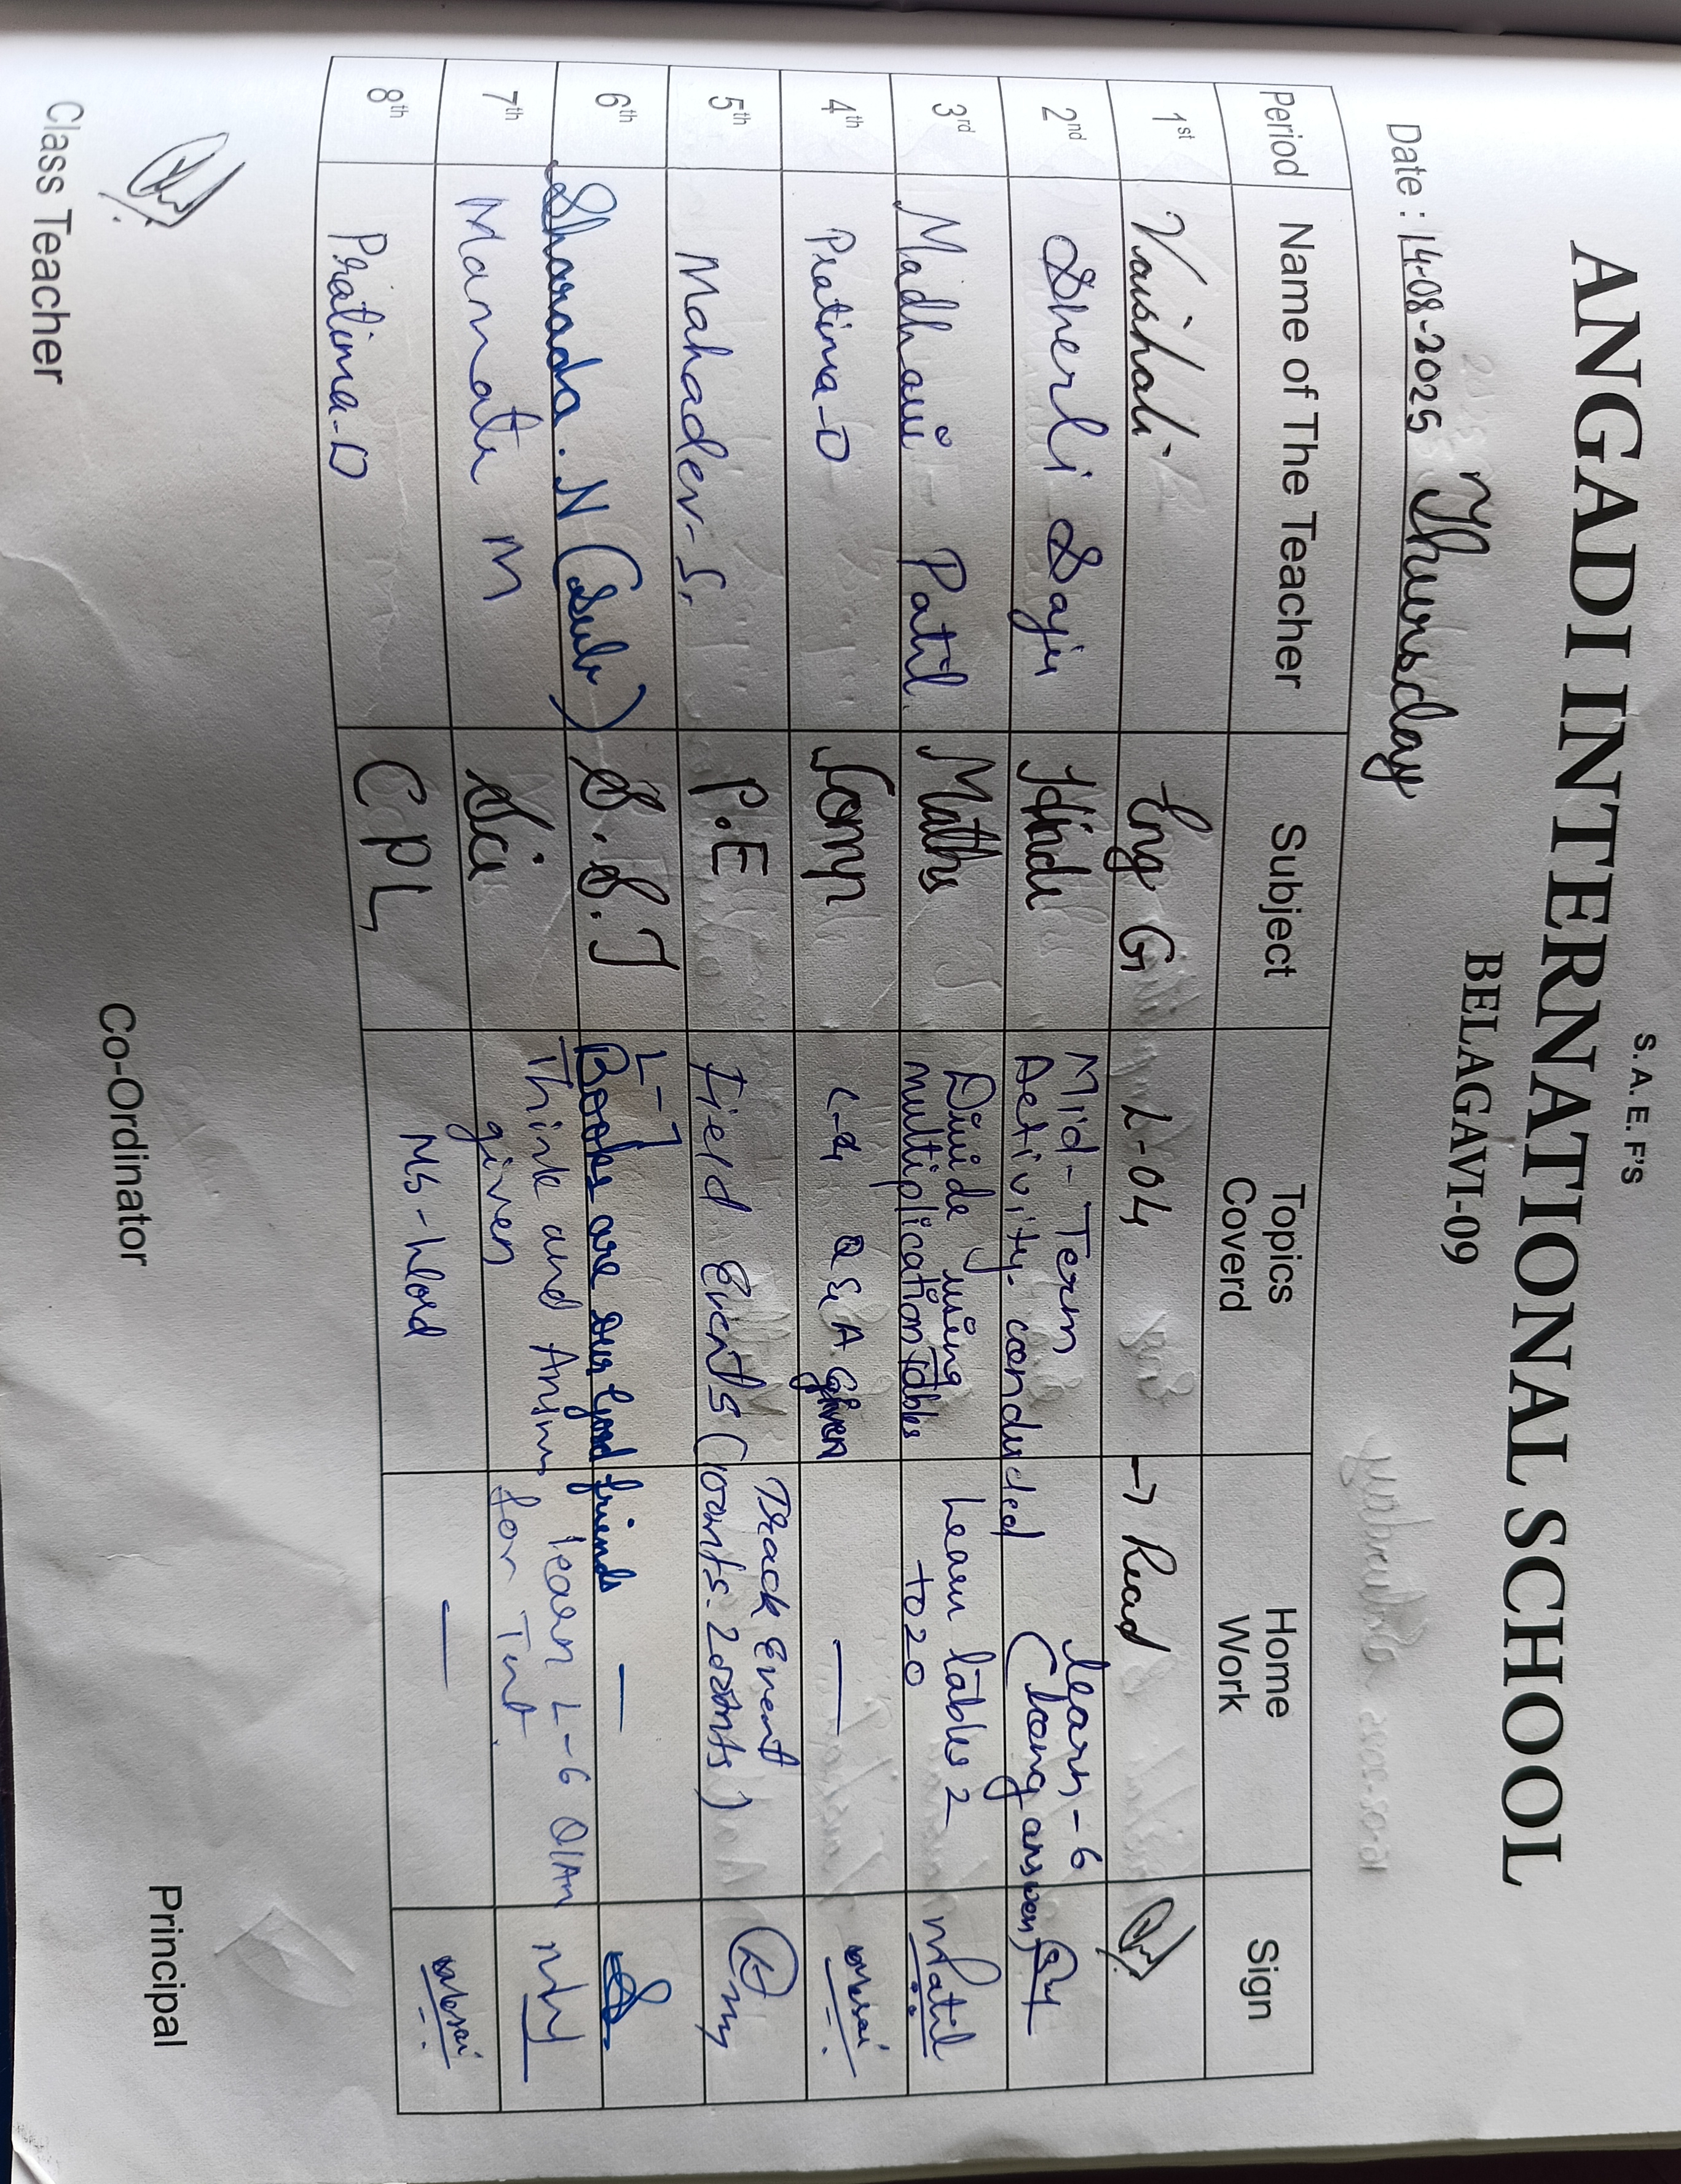 S.A.E.F'S
ANGADI INTERNATIONAL SCHOOL
BELAGAVI-09
Date : 14-08-2025 Thursday
Period Name of The Teacher Subject Topics Coverd Home Work Sign
1st Vaishali Eng G L-04 → Read
2nd Sherli Saju Hindi Mid-Term Activity. conducted learn-6 (long answer)
3rd Madhavi Patil Maths Divide using multiplication tables Learn tables 2 to 20 MPatil
4th Pratima-D Comp L-4 Q & A given —
5th Mahadev-S. P.E Field Events Track Event (100mts-200mts)
6th Sharada.N (Sub) S.S.T L-7 Books are our good friends —
7th Mamata M Sci Think and Answ given learn L-6 Q/An for Test
8th Pratima-D CPL MS-Word —
Class Teacher Co-Ordinator Principal